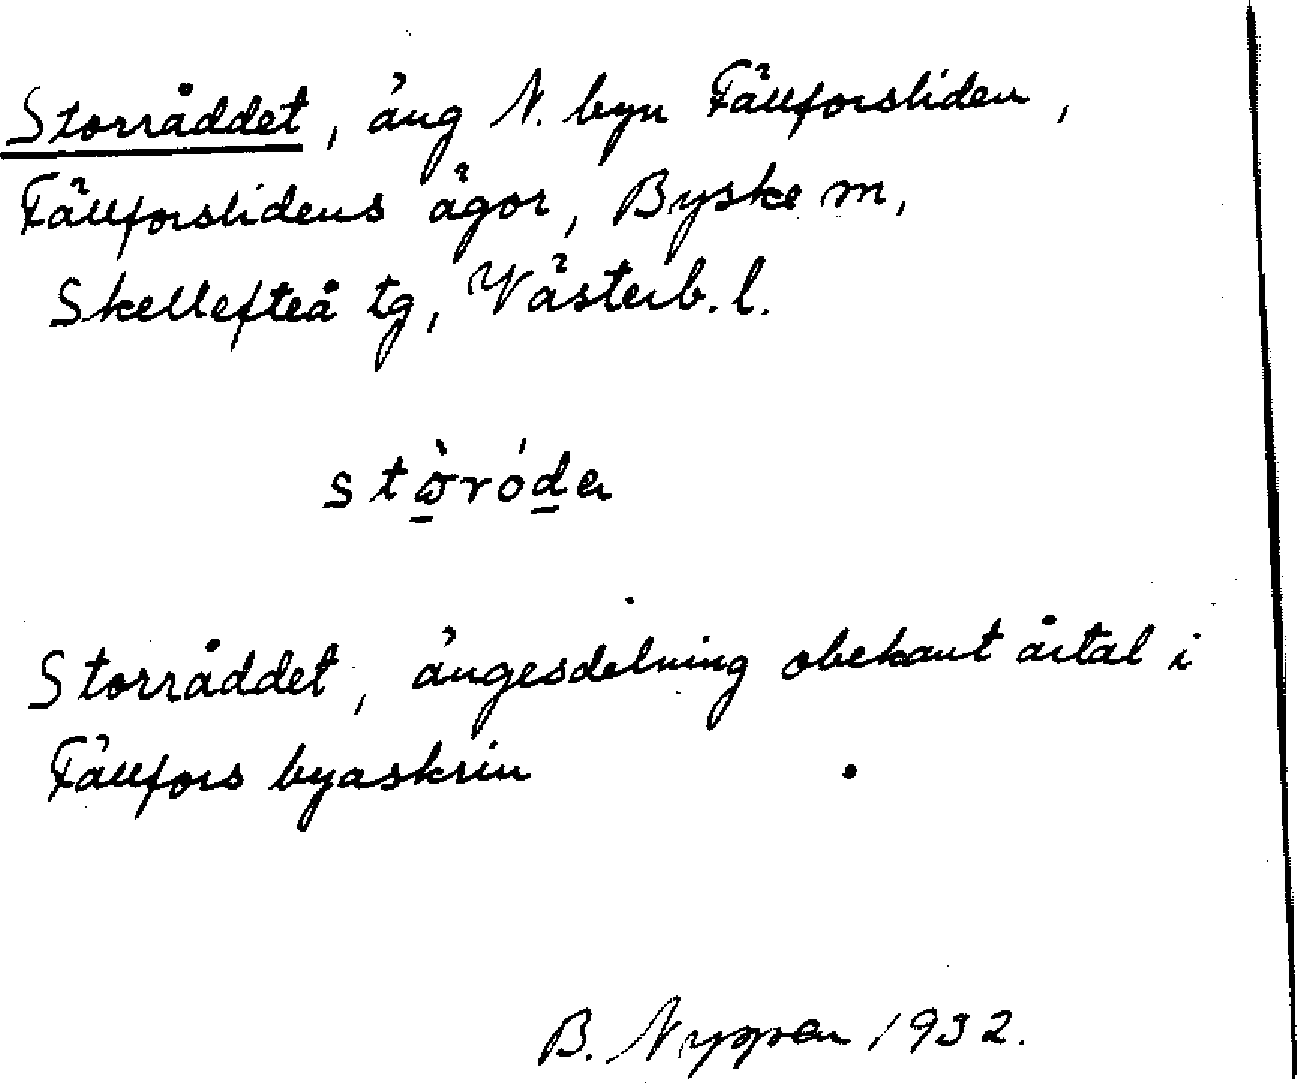 Storråddet, äng N. byn Fällforsliden,
Fällforslidens ägor, Byske sn,
Skellefteå tg, Västerb. l.
Storråddet, ängesdelning obekant årtal i
Fällfors byaskrin
B. Nygren 1932.